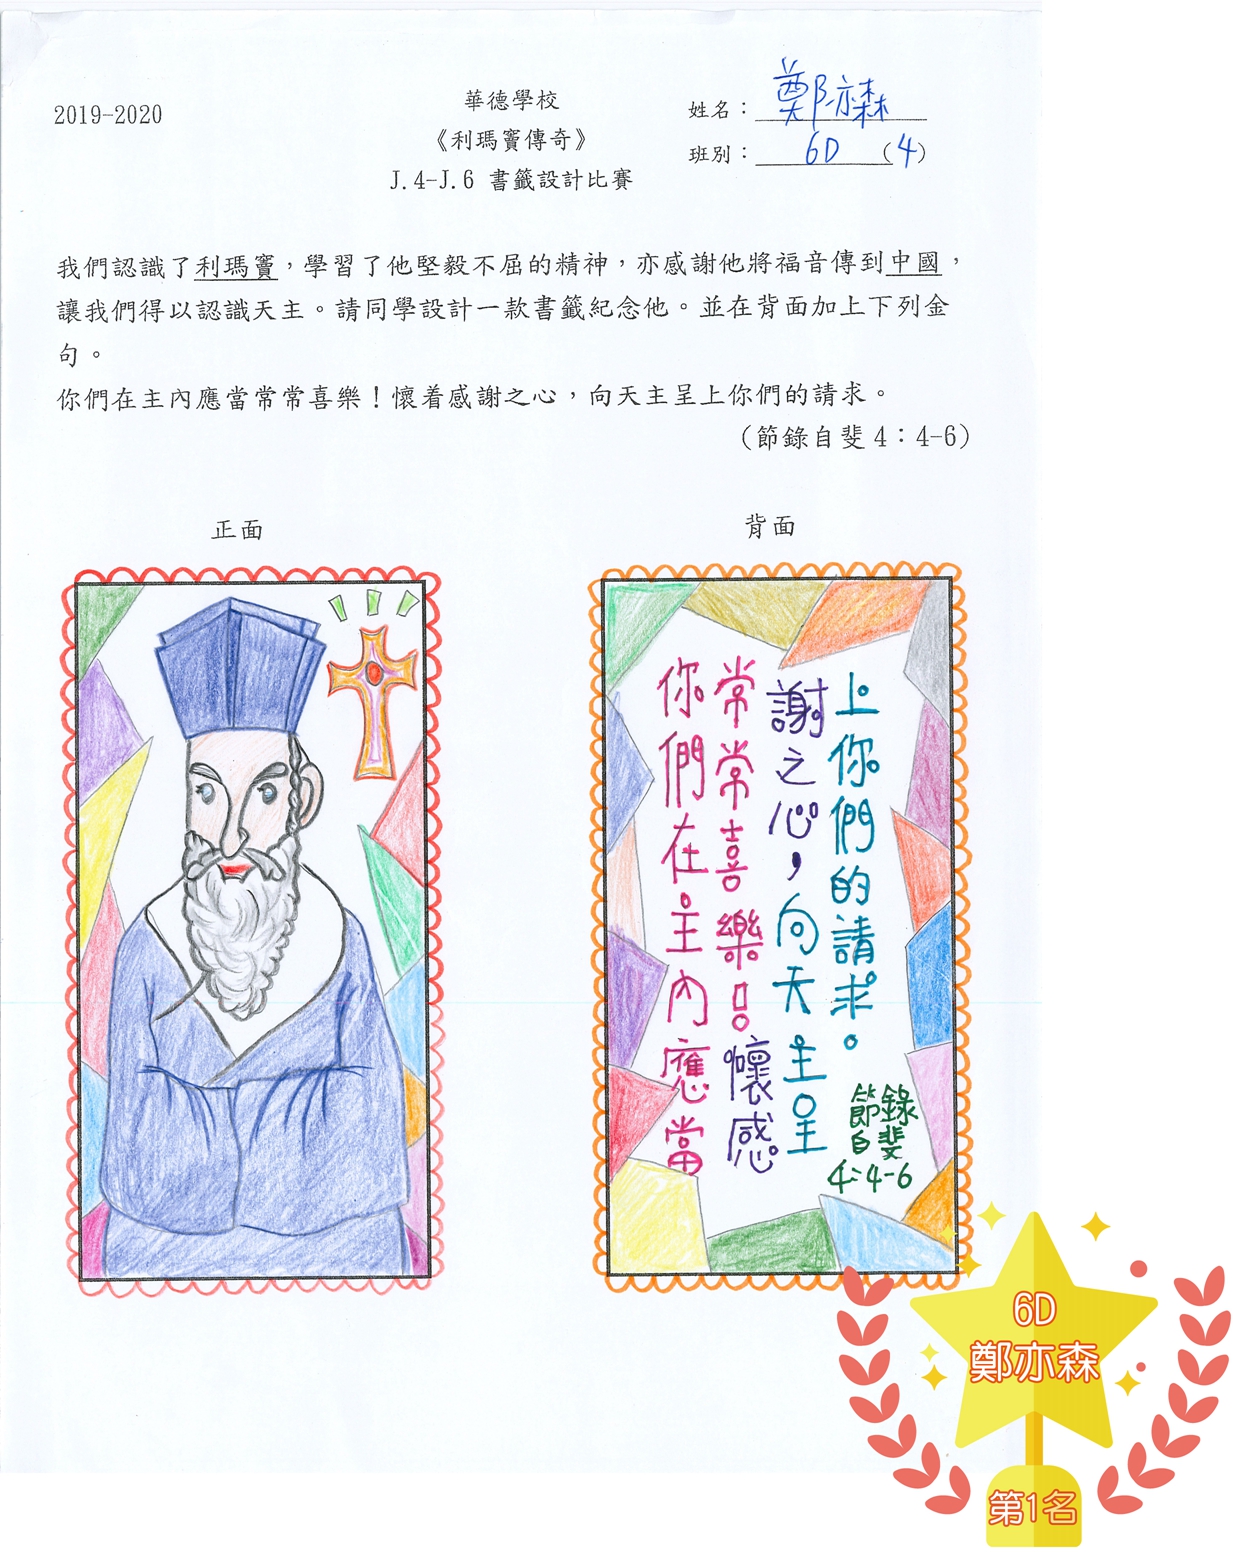 2019-2020
華德學校
《利瑪竇傳奇》
J.4-J.6 書籤設計比賽
姓名：鄭亦森
班別：6D (4)
我們認識了利瑪竇，學習了他堅毅不屈的精神，亦感謝他將福音傳到中國，
讓我們得以認識天主。請同學設計一款書籤紀念他。並在背面加上下列金
句。
你們在主內應當常常喜樂！懷着感謝之心，向天主呈上你們的請求。
(節錄自斐 4：4-6)
正面
背面
你們在主內應當
常常喜樂！懷感
謝之心，向天主呈
上你們的請求。
節錄
自斐
4:4-6
6D
鄭亦森
第1名